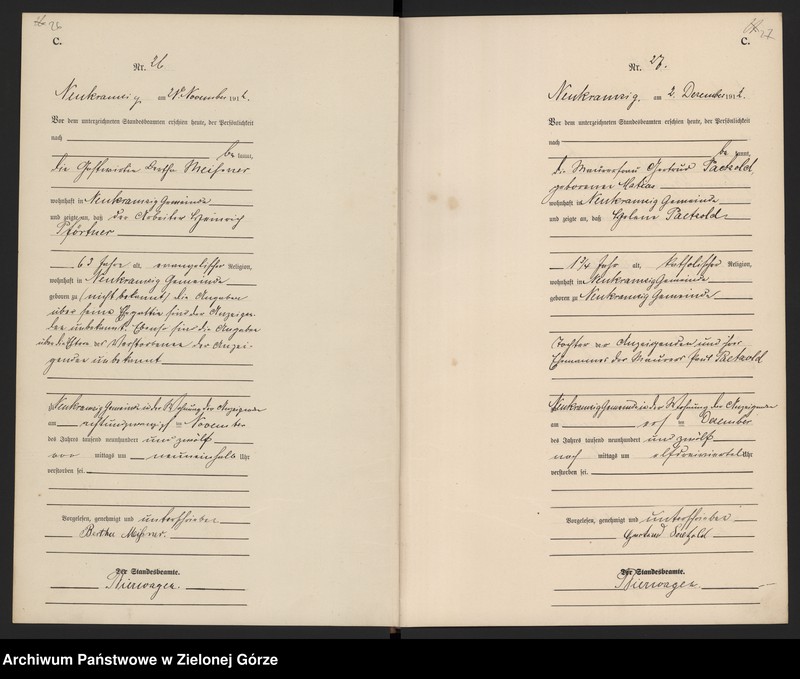 26
C.
Nr. 26
Neukramzig, am November 1912.
Vor dem unterzeichneten Standesbeamten erschien heute, der Persönlichkeit
nach
be kannt,
die Gastwirtin Bertha Meißner
wohnhaft in Neukramzig Gemeinde
und zeigte an, daß der Arbeiter Heinrich
Pförtner
63 Jahre alt, evangelischer Religion,
wohnhaft in Neukramzig Gemeinde
geboren zu (nicht bekannt) die Angaben
über seine Ehegattin sind der Anzeigen-
den unbekannt. Ebenso sind die Angaben
über die Eltern des Verstorbenen der Anzei-
genden unbekannt
Neukramzig Gemeinde in der Wohnung der Anzeigende
am achtundzwanzigsten November
des Jahres tausend neunhundert und zwölf
vor mittags um neuneinhalb Uhr
verstorben sei.
Vorgelesen, genehmigt und unterschrieben
Bertha Meißner.
Der Standesbeamte.
Bierwagen.
27
C.
Nr. 27.
Neukramzig, am 2. Dezember 1912.
Vor dem unterzeichneten Standesbeamten erschien heute, der Persönlichkeit
nach
be kannt,
die Maurerfrau Gertrud Paetzold,
geborene Matias
wohnhaft in Neukramzig Gemeinde
und zeigte an, daß Helene Paetzold
1 3/4 Jahr alt, katholischer Religion,
wohnhaft in Neukramzig Gemeinde
geboren zu Neukramzig Gemeinde
Tochter der Anzeigenden und ihres
Ehemannes des Maurers Paul Paetzold
Neukramzig Gemeinde in der Wohnung der Anzeigende
am ersten Dezember
des Jahres tausend neunhundert und zwölf
nach mittags um elfdreiviertel Uhr
verstorben sei.
Vorgelesen, genehmigt und unterschrieben
Gertrud Paetzold
Der Standesbeamte.
Bierwagen.
Archiwum Państwowe w Zielonej Górze